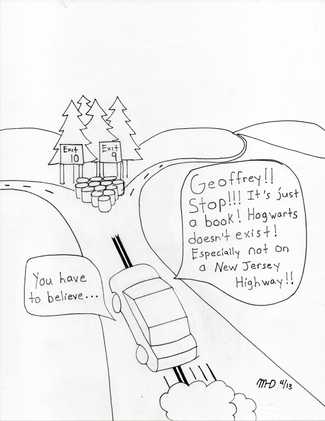 Exit
10
Exit
9
Geoffrey!!
Stop!!! It's just
a book! Hogwarts
doesn't exist!
Especially not on
a New Jersey
Highway!!
You have
to believe...
M-D 4/13